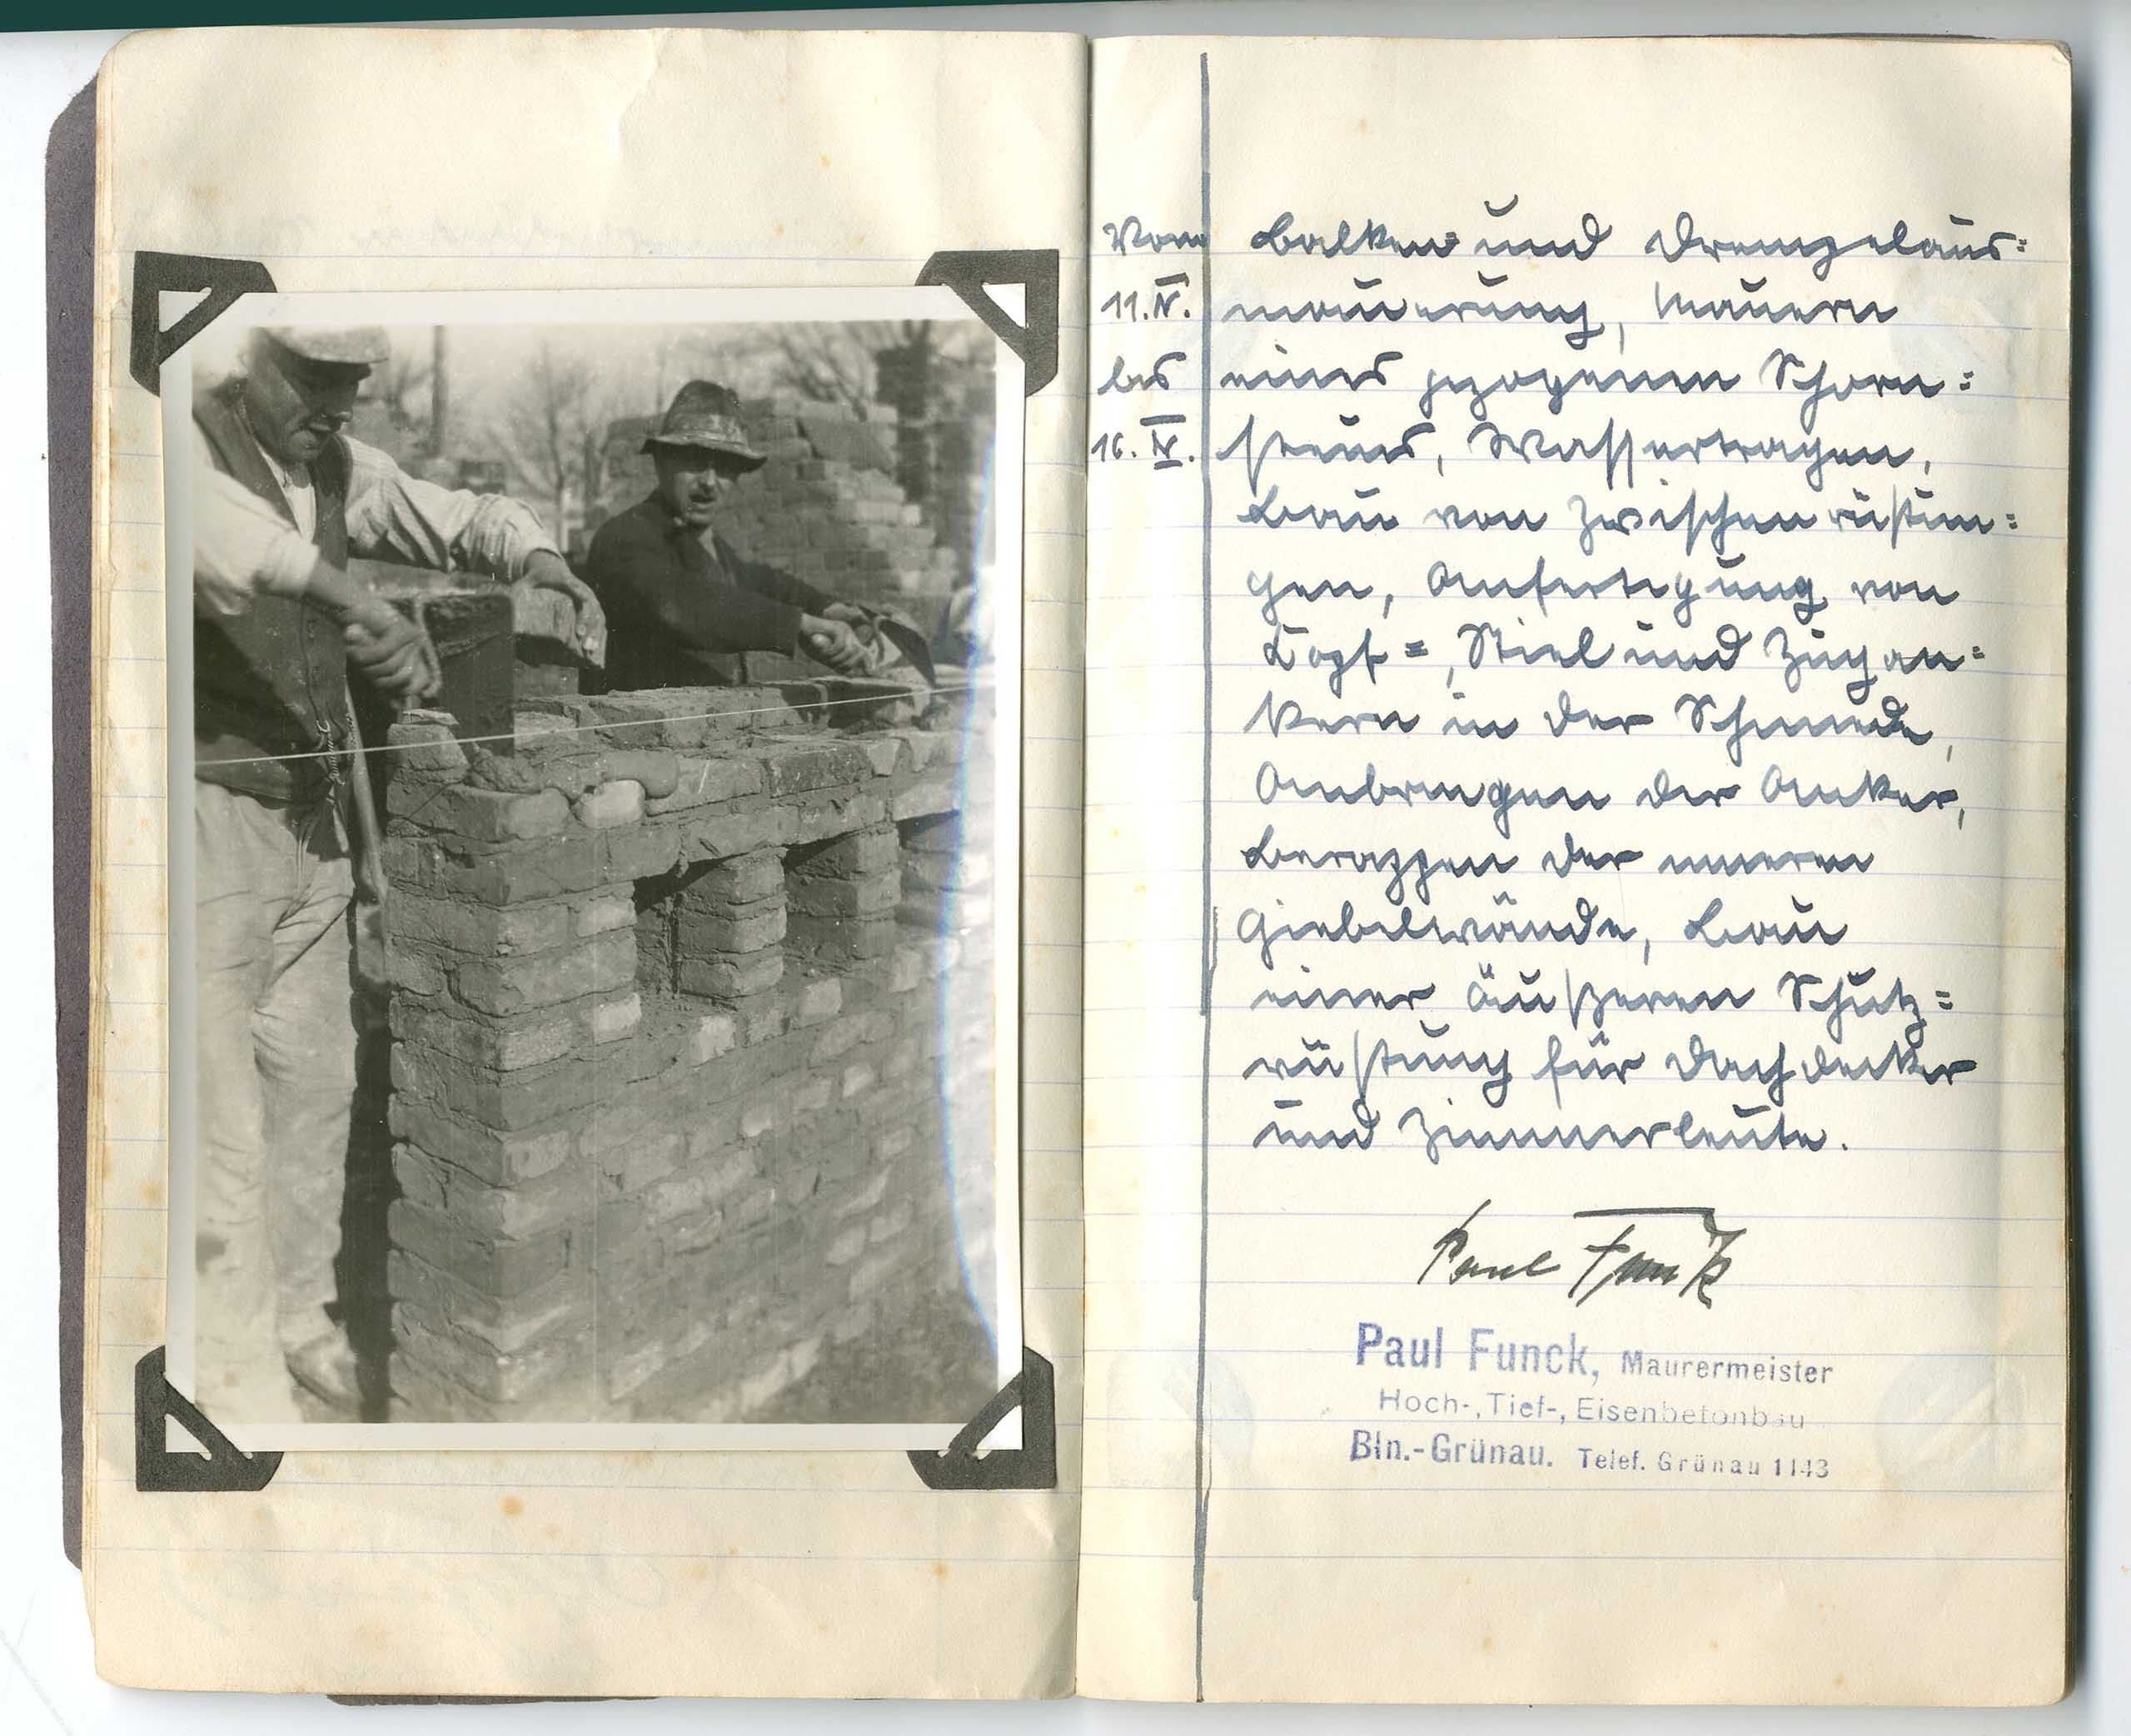 Vom Balken= und Drempelaus=
11.IV. mauerung, Mauern
bis eines gezogenen Schorn=
16.IV. steins, Wassertragen,
Bau von Zwischenrüstun=
gen, Anfertigung von
Kopf=, Stiel und Zugan=
kern in der Schmiede,
Anbringen der Anker,
Berappen der inneren
Giebelwände, Bau
einer äußeren Schutz=
rüstung für Dachdecker
und Zimmerleute.
Paul Funck
Paul Funck, Maurermeister
Hoch-, Tief-, Eisenbetonbau
Bln.-Grünau. Telef. Grünau 1143